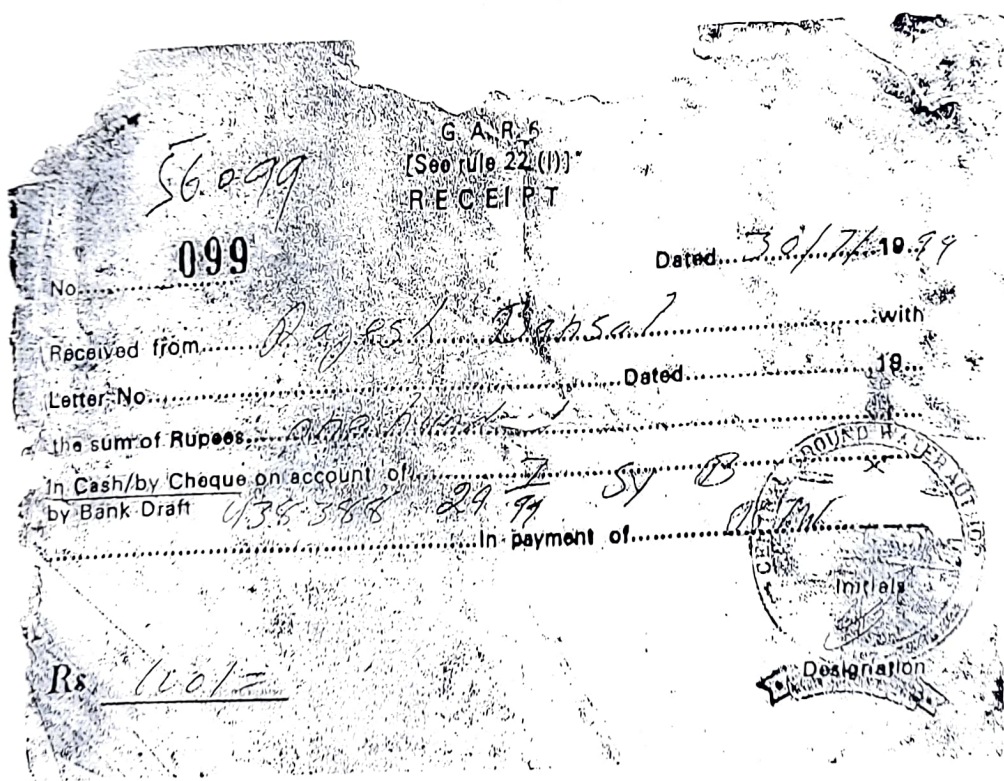 G A R 6
[See rule 22 (I)]
RECEIPT
56099
No. 099
Dated 30/7/ 1999
Received from Rajesh Bansal with
Letter No. Dated 19
the sum of Rupees one hundred
In Cash/by Cheque on account of
by Bank Draft 438388 29 7 99 Sy B
In payment of
CENTRAL GROUND WATER AUTHORITY
Initials
Designation
Rs 100/=